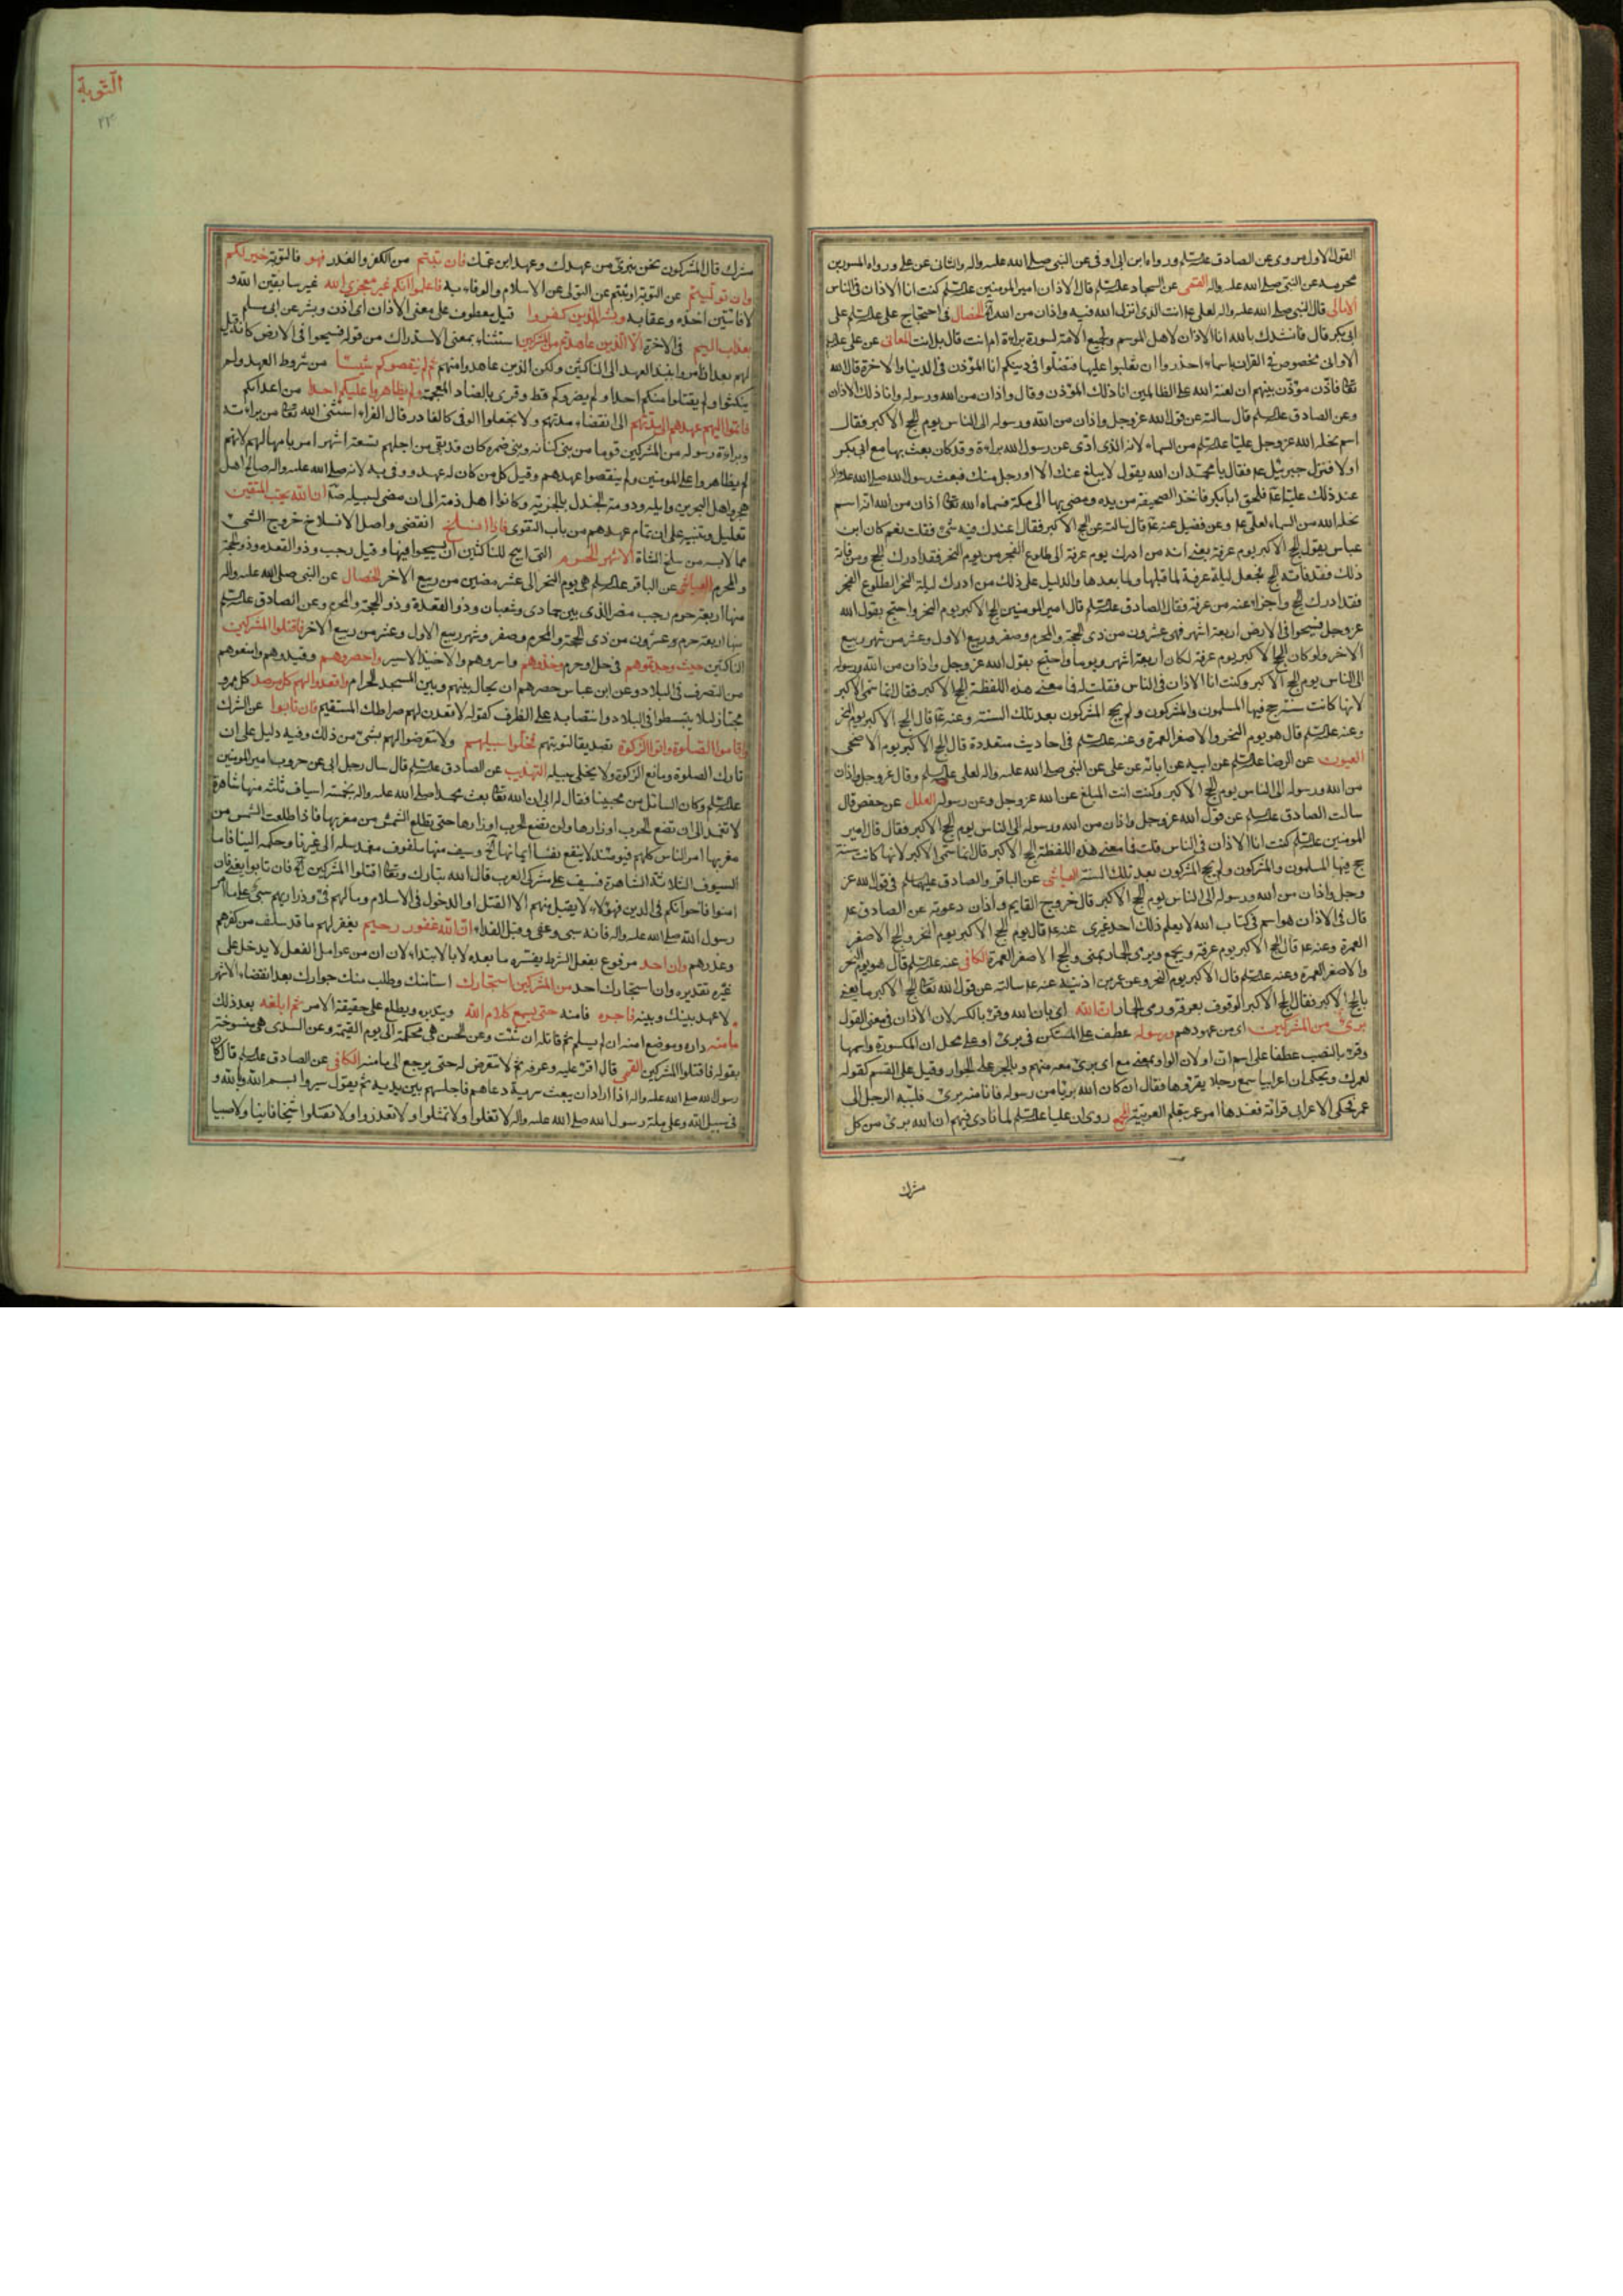 القول الاول مروى عن الصادق عليه السلم ورواه ابن ابى اوفى عن النبى صلى الله عليه واله والثانى عن على ورواه المسور بن
مخرمة عن النبى صلى الله عليه واله القمى عن السجاد عليه السلم قال الاذان امير المومنين عليه السلم كنت انا الاذان فى الناس
الامالى قال النبى صلى الله عليه واله لعلى ع انت الذى انزل الله فيه واذان من الله آلخ الخصال فى احتجاج على عليه السلم على
ابى بكر قال فانشدك بالله انا الاذان لاهل الموسم ولجميع الامة لسورة براءة ام انت قال بل انت المعانى عن على عليه
الا وانى مخصوص فى القران باسماء احذروا ان تغلبوا عليها فتضلوا فى دينكم انا المؤذن فى الدنيا والاخرة قال الله
تعالى فاذن مؤذن بينهم ان لعنة الله على الظالمين انا ذلك المؤذن وقال واذان من الله ورسوله وانا ذلك الاذان
وعن الصادق عليه السلم قال سالته عن قول الله عز وجل واذان من الله ورسوله الى الناس يوم الحج الاكبر فقال
اسم نحله الله عز وجل عليا عليه السلم من السماء لانه الذى ادى عن رسول الله براءة وقد كان بعث بها مع ابى بكر
اولا فنزل جبرئيل ع فقال يا محمد ان الله يقول لا يبلغ عنك الا انت او رجل منك فبعث رسول الله صلى الله عليه واله
عند ذلك عليا ع فلحق ابابكر فاخذ الصحيفة من يده ومضى بها الى مكة فسماه الله تعالى اذان من الله انه اسم
نحله الله من السماء لعلى ع وعن فضيل عنه ع قال سالته عن الحج الاكبر فقال اعندك فيه شئ فقلت نعم كان ابن
عباس يقول الحج الاكبر يوم عرفة يعنى انه من ادرك يوم عرفة الى طلوع الفجر من يوم النحر فقد ادرك الحج ومن فاته
ذلك فقد فاته الحج فجعل ليلة عرفة لما قبلها ولما بعدها والدليل على ذلك من ادرك ليلة النحر الى طلوع الفجر
فقد ادرك الحج واجزاء عنه من عرفة فقال الصادق عليه السلم قال امير المومنين الحج الاكبر يوم النحر واحتج بقول الله
عز وجل فسيحوا فى الارض اربعة اشهر فهى عشرون من ذى الحجة والمحرم وصفر وربيع الاول وعشر من شهر ربيع
الاخر ولو كان الحج الاكبر يوم عرفة لكان اربعة اشهر ويوما واحتج بقول الله عز وجل واذان من الله ورسوله
الى الناس يوم الحج الاكبر وكنت انا الاذان فى الناس فقلت له فما معنى هذه اللفظة الحج الاكبر فقال انما سمى الاكبر
لانها كانت سنة حج فيها المسلمون والمشركون ولم يحج المشركون بعد تلك السنة وعنه ع قال الحج الاكبر يوم النحر
وعنه عليه السلم قال هو يوم النحر والاصغر العمرة وعنه عليه السلم فى احاديث متعددة قال الحج الاكبر يوم الاضحى
العيون عن الرضا عليه السلم عن ابيه عن ابائه عن على عن النبى صلى الله عليه واله لعلى عليه السلم وقال عز وجل واذان
من الله ورسوله الى الناس يوم الحج الاكبر وكنت انت المبلغ عن الله عز وجل وعن رسوله العلل عن حفص قال
سالت الصادق عليه السلم عن قول الله عز وجل واذان من الله ورسوله الى الناس يوم الحج الاكبر فقال قال امير
المومنين عليه السلم كنت انا الاذان فى الناس قلت فما معنى هذه اللفظة الحج الاكبر قال انما سمى الاكبر لانها كانت سنة
حج فيها المسلمون والمشركون ولم يحج المشركون بعد تلك السنة العياشى عن الباقر والصادق عليهما السلم فى قول الله عز
وجل واذان من الله ورسوله الى الناس يوم الحج الاكبر قال خروج القايم واذان دعوته عن الصادق ع
قال فى الاذان هو اسم فى كتاب الله لا يعلم ذلك احد غيرى عنه ع قال يوم الحج الاكبر يوم النحر والحج الاصغر
العمرة وعنه ع قال الحج الاكبر يوم عرفة ويجمع وبرمى الجمار بمنى والحج الاصغر العمرة الكافى عنه عليه السلم قال هو يوم النحر
والاصغر العمرة وعنه عليه السلم قال الاكبر يوم النحر وعن عمر بن اذينة عنه ع سالته عن قول الله تعالى الحج الاكبر ما يعنى
بالحج الاكبر فقال الحج الاكبر الوقوف بعرفة ورمى الجمار ان الله اى بان الله وقرئ بالكسر لان الاذان فى معنى القول
برئ من المشركين اى من عهودهم ورسوله عطف على المستكن فى برئ او على محل ان المكسورة واسمها
وقرئ بالنصب عطفا على اسم ان او لان الواو بمعنى مع اى برئ معه منهم وبالجر على الجوار وقيل على القسم كقوله
لعمرك ويحكى ان اعرابيا سمع رجلا يقرؤها فقال ان كان الله بريا من رسوله فانا منه برئ فلببه الرجل الى
عمر فحكى الاعرابى قرائته فعندها امر عمر بتعلم العربية المجمع روى ان عليا عليه السلم لما نادى فيهم ان الله برئ من كل
مشرك
التوبة
٢٢
مشرك قال المشركون نحن نتبرئ من عهدك وعهد ابن عمك فان تبتم من الكفر والغدر فهو فالتوبة خير لكم
وان توليتم عن التوبة او ثبتم عن التولى عن الاسلام والوفاء به فاعلموا انكم غير معجزى الله غير سابقين الله و
لا فائتين اخذه وعقابه وبشر الذين كفروا قيل معطوف على معنى الاذان اى اذن وبشر عن ابى مسلم
بعذاب اليم فى الاخرة الا الذين عاهدتم من المشركين استثناء بمعنى الاستدراك من قوله فسيحوا فى الارض كانه قيل
لهم بعد اذ امروا بنبذ العهد الى الناكثين ولكن الذين عاهدوا منهم ثم لم ينقصوكم شيئا من شروط العهد ولم
ينكثوا ولم يقتلوا منكم احدا ولم يضروكم قط وقرى بالضاد المعجمة ولم يظاهروا عليكم احدا من اعدائكم
فاتموا اليهم عهدهم الى مدتهم الى انقضاء مدتهم ولا تجعلوا الوفى كالغادر قال الفراء استثنى الله تعالى من براءته
وبراءة رسوله من المشركين قوما من بنى كنانه وبنى ضمره كان قد بقى من اجلهم تسعة اشهر امر باتمامها لهم لانهم
لم يظاهروا على المومنين ولم ينقصوا عهدهم وقيل كل من كان له عهد ووفى به لانه صلى الله عليه واله صالح اهل
هجر واهل البحرين وايله ودومة الجندل بالجزية وكانوا اهل ذمته الى ان مضى لسبيله ان الله يحب المتقين
تعليل وتنبيه على ان تمام عهدهم من باب التقوى فاذا انسلخ انقضى واصل الانسلاخ خروج الشئ
مما لابسه من سلخ الشاة الاشهر الحرم التى ابيح للناكثين ان يسيحوا فيها وقيل رجب وذو القعده وذو الحجة
والمحرم العياشى عن الباقر عليه السلم هى يوم النحر الى عشر مضين من ربيع الاخر الخصال عن النبى صلى الله عليه واله
منها اربعة حرم رجب مضر الذى بين جمادى وشعبان وذو القعدة وذو الحجة والمحرم وعن الصادق عليه السلم
منها اربعة حرم وعشرون من ذى الحجة والمحرم وصفر وشهر ربيع الاول وعشر من ربيع الاخر فاقتلوا المشركين
الناكثين حيث وجدتموهم فى حل او حرم وخذوهم واسروهم والاخيذ الاسير واحصروهم وقيدوهم وامنعوهم
من التصرف فى البلاد وعن ابن عباس حصرهم ان يحال بينهم وبين المسجد الحرام واقعدوا لهم كل مرصد كل ممر و
مجتاز لئلا ينبسطوا فى البلاد وانتصابه على الظرف كقوله لاقعدن لهم صراطك المستقيم فان تابوا عن الشرك
واقاموا الصلوة واتوا الزكوة تصديقا لتوبتهم فخلوا سبيلهم ولا تتعرضوا لهم بشئ من ذلك وفيه دليل على ان
تارك الصلوة ومانع الزكوة لا يخلى سبيله التهذيب عن الصادق عليه السلم قال سال رجل ابى عن حروب امير المومنين
عليه السلم وكان السائل من محبينا فقال له ابى ان الله تعالى بعث محمدا صلى الله عليه واله بخمسة اسياف ثلثة منها شاهرة
لا تغمد الى ان تضع الحرب اوزارها ولن تضع الحرب اوزارها حتى تطلع الشمس من مغربها فاذا طلعت الشمس من
مغربها امن الناس كلهم فيومئذ لا ينفع نفسا ايمانها آلخ وسيف منها ملفوف مغمد سله الى غيرنا وحكمه الينا فاما
السيوف الثلاثة الشاهرة فسيف على مشركى العرب قال الله تبارك وتعالى اقتلوا المشركين آلخ فان تابوا يعنى فان
امنوا فاخوانكم فى الدين فهؤلاء لا يقبل منهم الا القتل او الدخول فى الاسلام ومالهم فئ وذراريهم سبى على ما امر
رسول الله صلى الله عليه واله فانه سبى وعفى وقبل الفداء ان الله غفور رحيم يغفر لهم ما قد سلف من كفرهم
وغدرهم وان احد مرفوع بفعل الشرط يفسره ما بعده لا بالابتداء لان ان من عوامل الفعل لا يدخل على
غيره تقديره وان استجارك احد من المشركين استجارك استامنك وطلب منك جوارك بعد انقضاء الاشهر
لا عهد بينك وبينه فاجره فامنه حتى يسمع كلام الله ويتدبره ويطلع على حقيقة الامر ثم ابلغه بعد ذلك
مأمنه داره وموضع امنه ان لم يسلم ثم قاتله ان شئت وعن الحسن هى محكمة الى يوم القيمة وعن السدى هى منسوخة
بقوله فاقتلوا المشركين القمى قال اقرء عليه وعرفه ثم لا تتعرض له حتى يرجع الى مامنه الكافى عن الصادق عليه السلم قال كان
رسول الله صلى الله عليه واله اذا اراد ان يبعث سرية دعاهم فاجلسهم بين يديه ثم يقول سيروا بسم الله وبالله و
فى سبيل الله وعلى ملة رسول الله صلى الله عليه واله لا تغلوا ولا تمثلوا ولا تغدروا ولا تقتلوا شيخا فانيا ولا صبيا